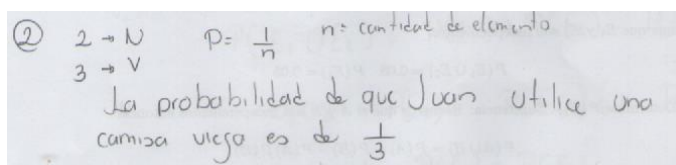 ② 2 → N P = 1/n n = cantidad de elemento
3 → V
La probabilidad de que Juan utilice una
camisa vieja es de 1/3